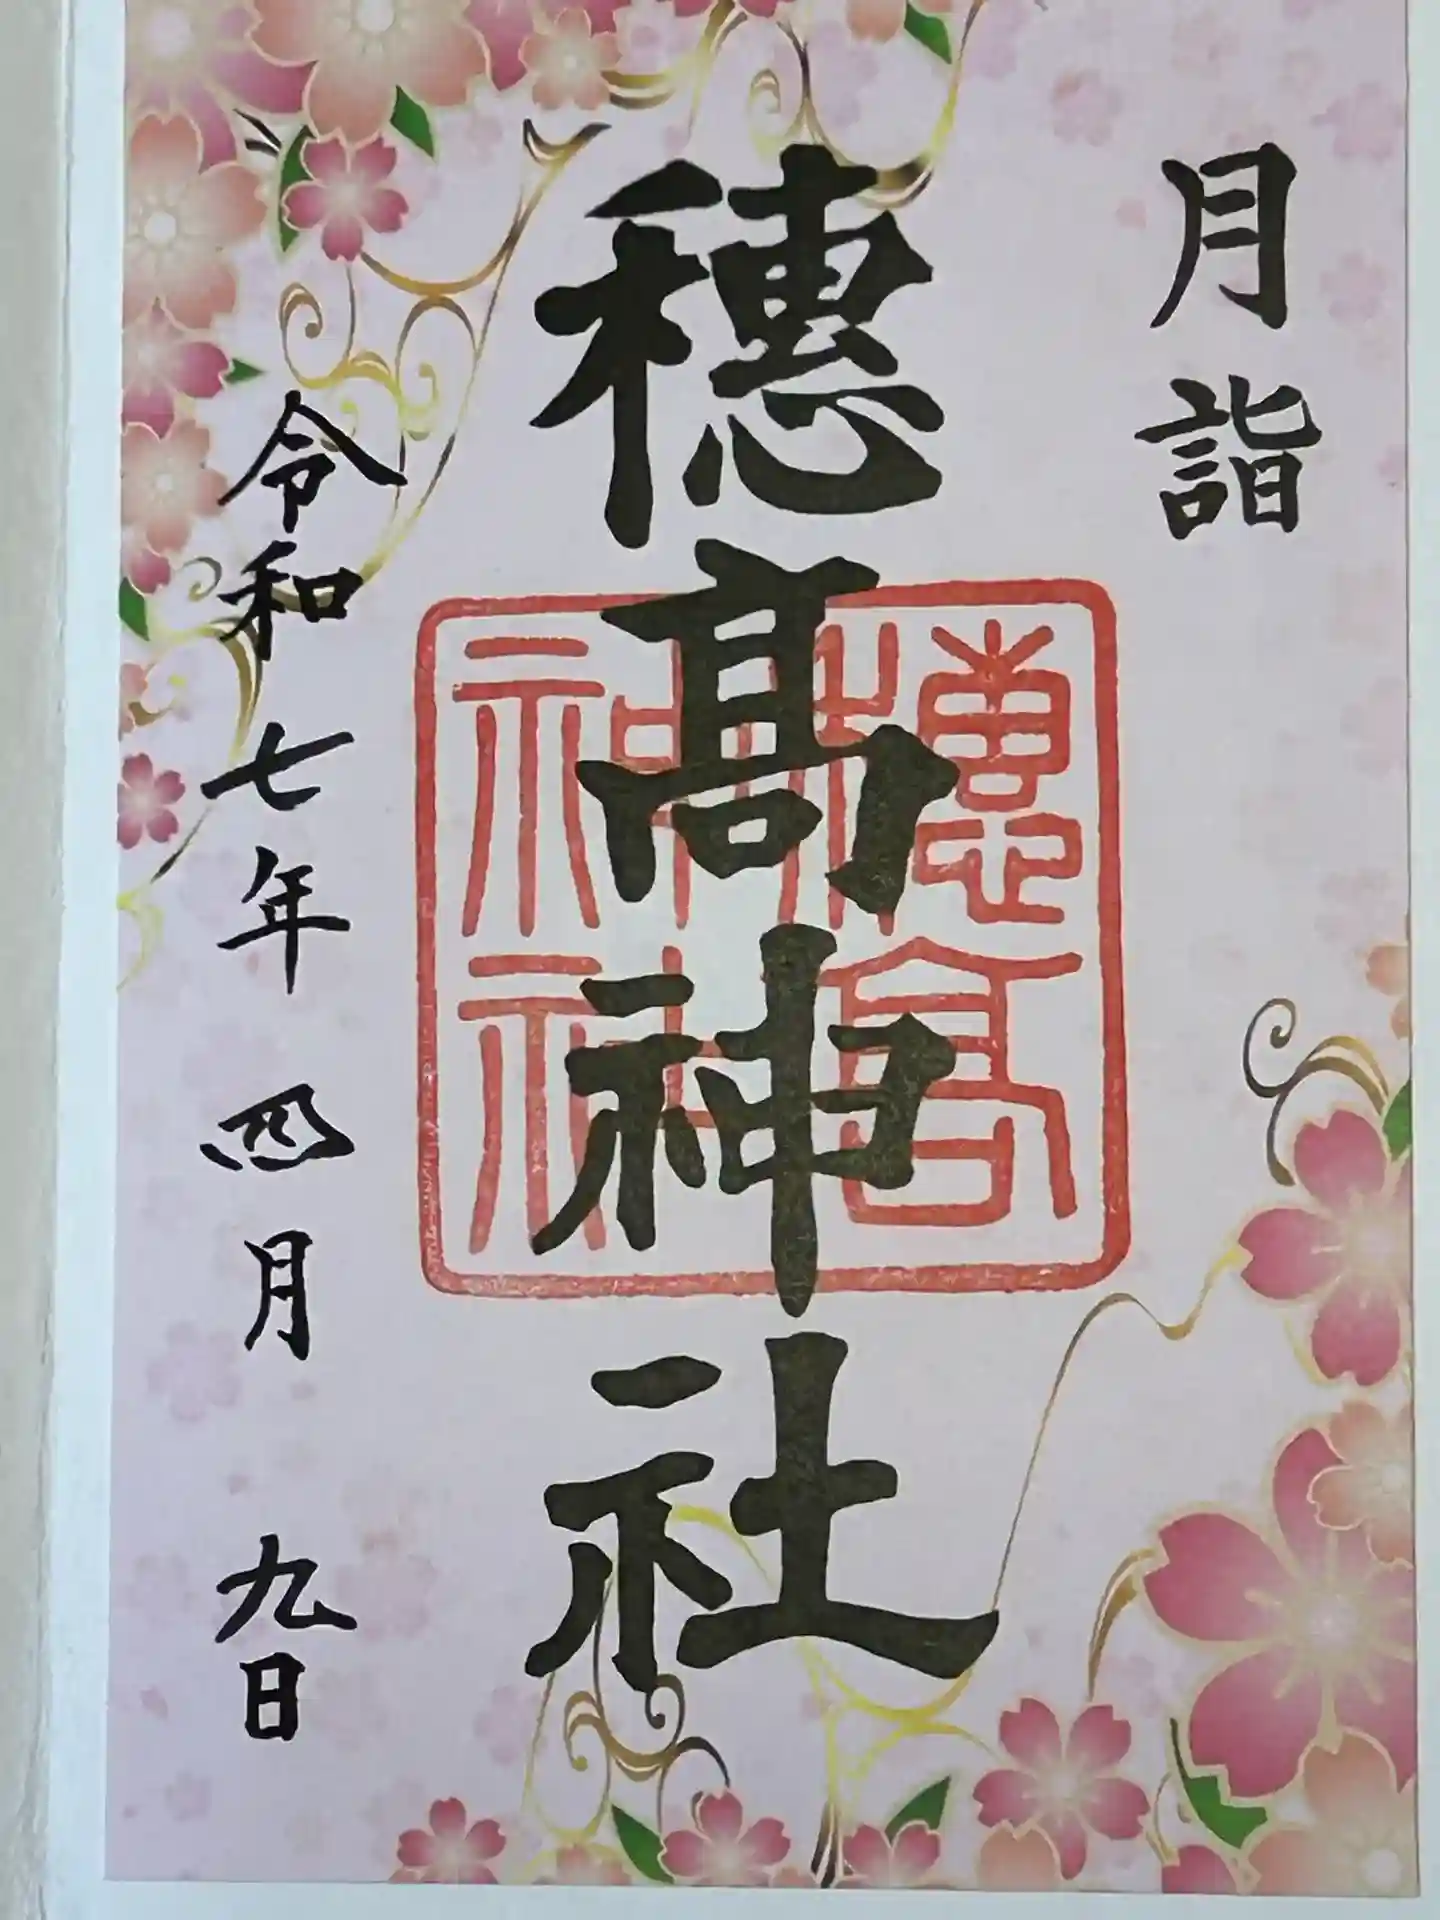 月詣
穂髙神社
穂高神社
令和七年四月九日